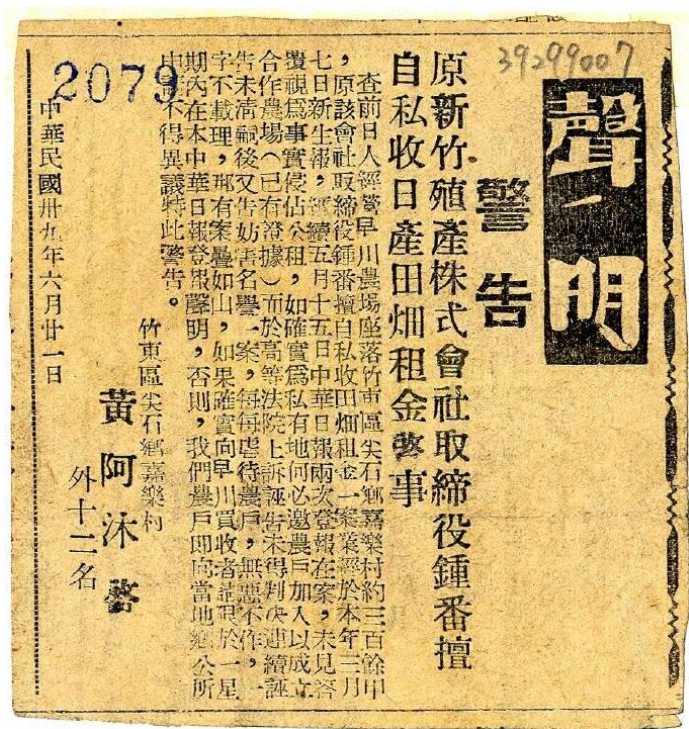 39299007
聲明
警告
原新竹殖產株式會社取締役鍾番擅
自私收日產田畑租金警事
查前日人經營早川農場座落竹東區尖石鄉嘉樂村約三百餘甲
,原該會社取締役鍾番擅自私收田畑租金一案業經於本年三月
七日新生報,繼續五月十五日中華日報兩次登報在案,未見答
覆視爲事實侵佔公租,如確實爲私有地何必邀農戶加入以成立
合作農場(已有證據)而於高等法院上訴誣告未得判決連續誣
告未清嗣後又告妨害名譽一案,每每虐待農戶,無惡不作,一
字不載理,都有案疊如山,如果確實向早川買收者請限於一星
期內在本中華日報登報聲明,否則,我們農戶即向當地鄉公所
申請不得異議特此警告。
竹東區尖石鄉嘉樂村
黃阿沐 啓
外十二名
中華民國卅九年六月廿一日
2079